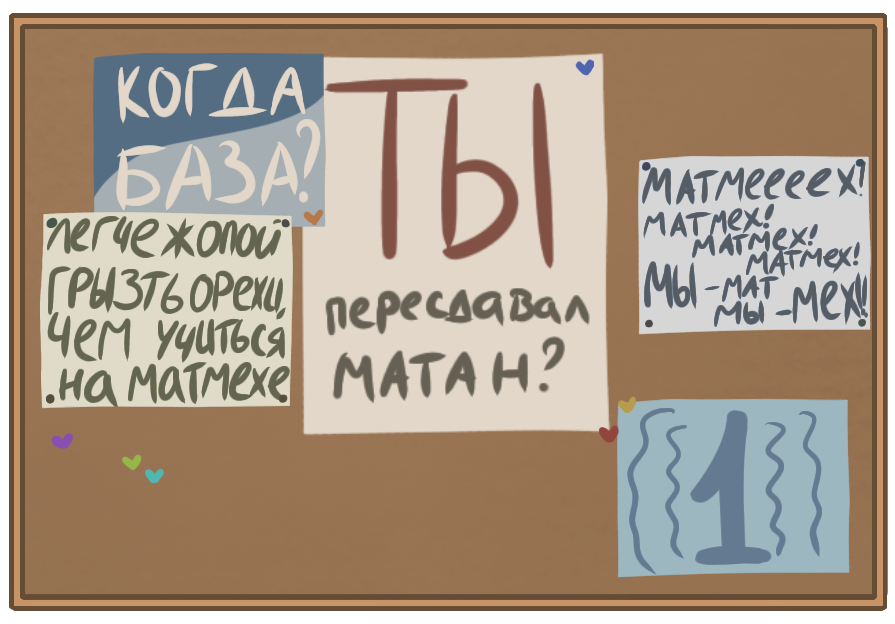 КОГДА
БАЗА?
ЛЕГЧЕ ЖОПОЙ
ГРЫЗТЬ ОРЕХИ,
ЧЕМ УЧИТЬСЯ
НА МАТМЕХЕ
ТЫ
пересдавал
МАТАН?
МАТМЕЕЕЕХ!
МАТМЕХ!
МАТМЕХ!
МАТМЕХ!
МЫ - МАТ
МЫ - МЕХ!!
1